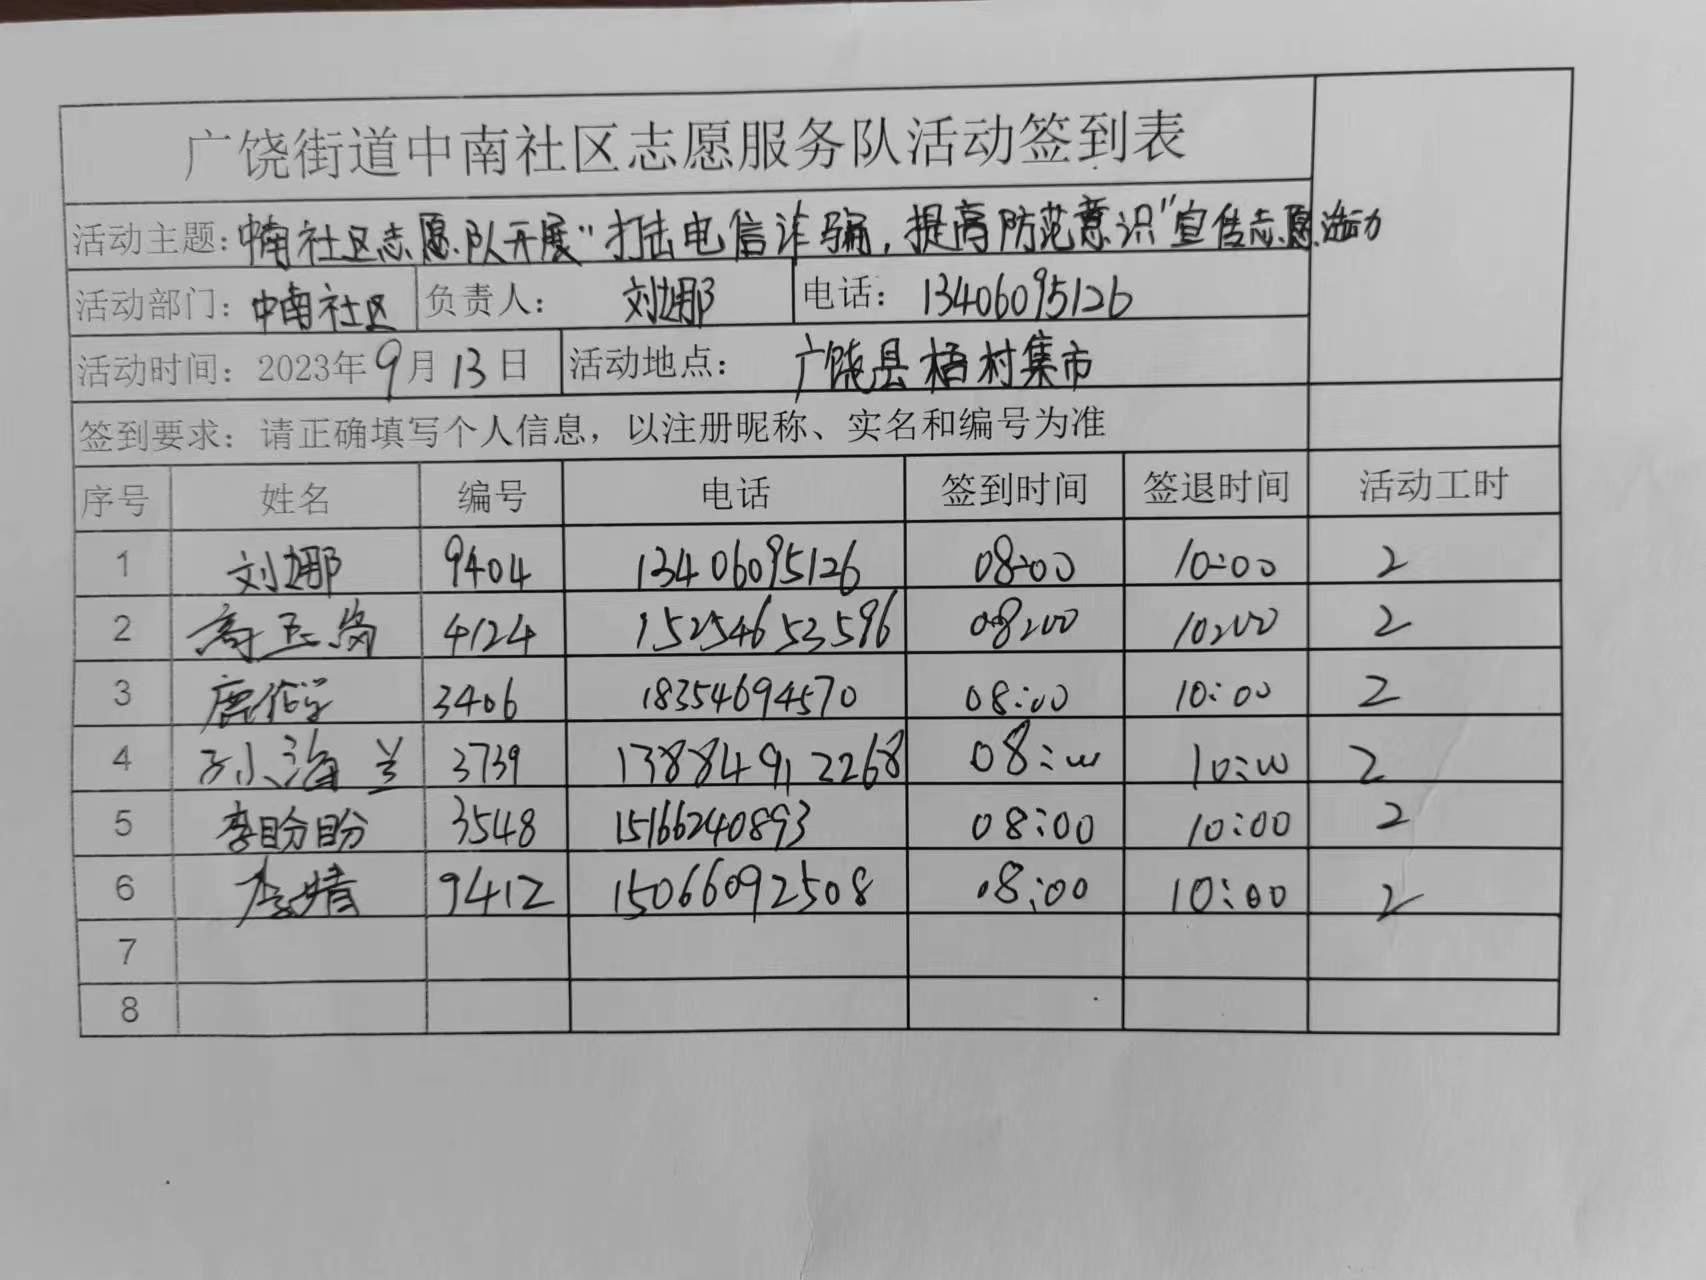 广饶街道中南社区志愿服务队活动签到表
活动主题：中南社区志愿队开展“打击电信诈骗，提高防范意识”宣传志愿活动
活动部门：中南社区 负责人： 刘娜 电话：13406095126
活动时间：2023年9月13日 活动地点：广饶县梧村集市
签到要求：请正确填写个人信息，以注册昵称、实名和编号为准
序号 姓名 编号 电话 签到时间 签退时间 活动工时
1 刘娜 9404 13406095126 08:00 10:00 2
2 4124 15254653596 08:00 10:00 2
3 3406 18354694570 08:00 10:00 2
4 孙海兰 3739 13884912268 08:00 10:00 2
5 李盼盼 3548 15166240893 08:00 10:00 2
6 李婧 9412 15066092508 08:00 10:00 2
7
8